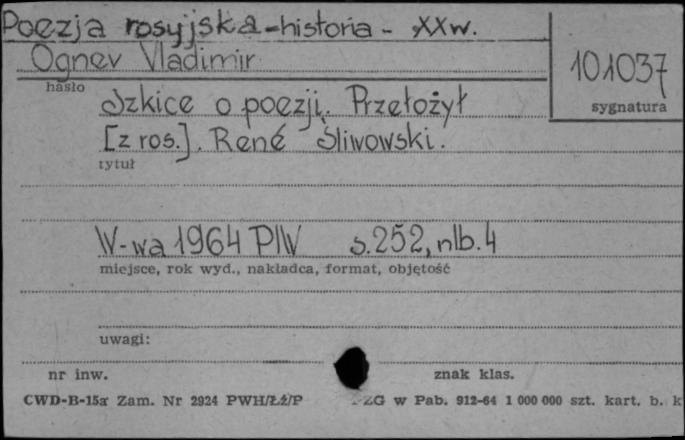 Poezja rosyjska - historia - XX w.
Ognev Vladimir
101037
hasło
sygnatura
Szkice o poezji. Przełożył
[z ros.]. René Śliwowski.
tytuł
W-wa 1964 PIW s. 252, nlb. 4
miejsce, rok wyd., nakładca, format, objętość
uwagi:
nr inw.
znak klas.
CWD-B-15a Zam. Nr 2924 PWH/ŁŻ/P ZG w Pab. 912-64 1 000 000 szt. kart. b. k